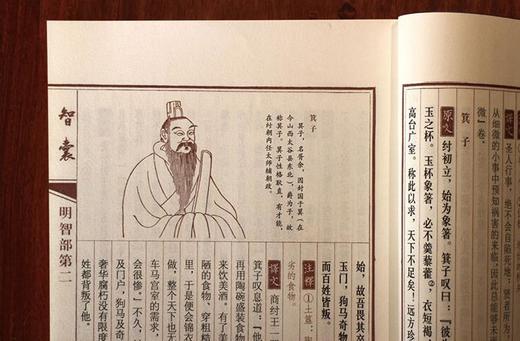 译文 圣人行事,绝不会自陷死地;
从细微的小事中预知祸害的来临,因此总能够
微”卷。
箕子
原文 纣初立,始为象箸。箕子叹曰:“彼
玉之杯。玉杯象箸,必不羹藜藿②,衣短褐
高台广室。称此以求,天下不足矣!远方珍
箕子
箕子,名胥余,因封国于箕(在
今山西太谷县东北),爵为子,故
称箕子。箕子性格耿直,有才能,
在纣朝内任太师辅朝政。
始,故吾畏其卒
玉门,狗马奇物
而百姓皆叛。
注释 ①土簋:陶
劣的食物。
译文 商纣王一
箕子叹息道:“他
再用陶碗盛装食物
来饮美酒。有了美
陋的食物,穿粗糙
里,于是便会锦衣
做,整个天下也
车马宫室的需求,
会很惨!”不久,
及门户,狗马及奇
奢华腐朽没有限度
姓都背叛了他。
智囊
明智部第二